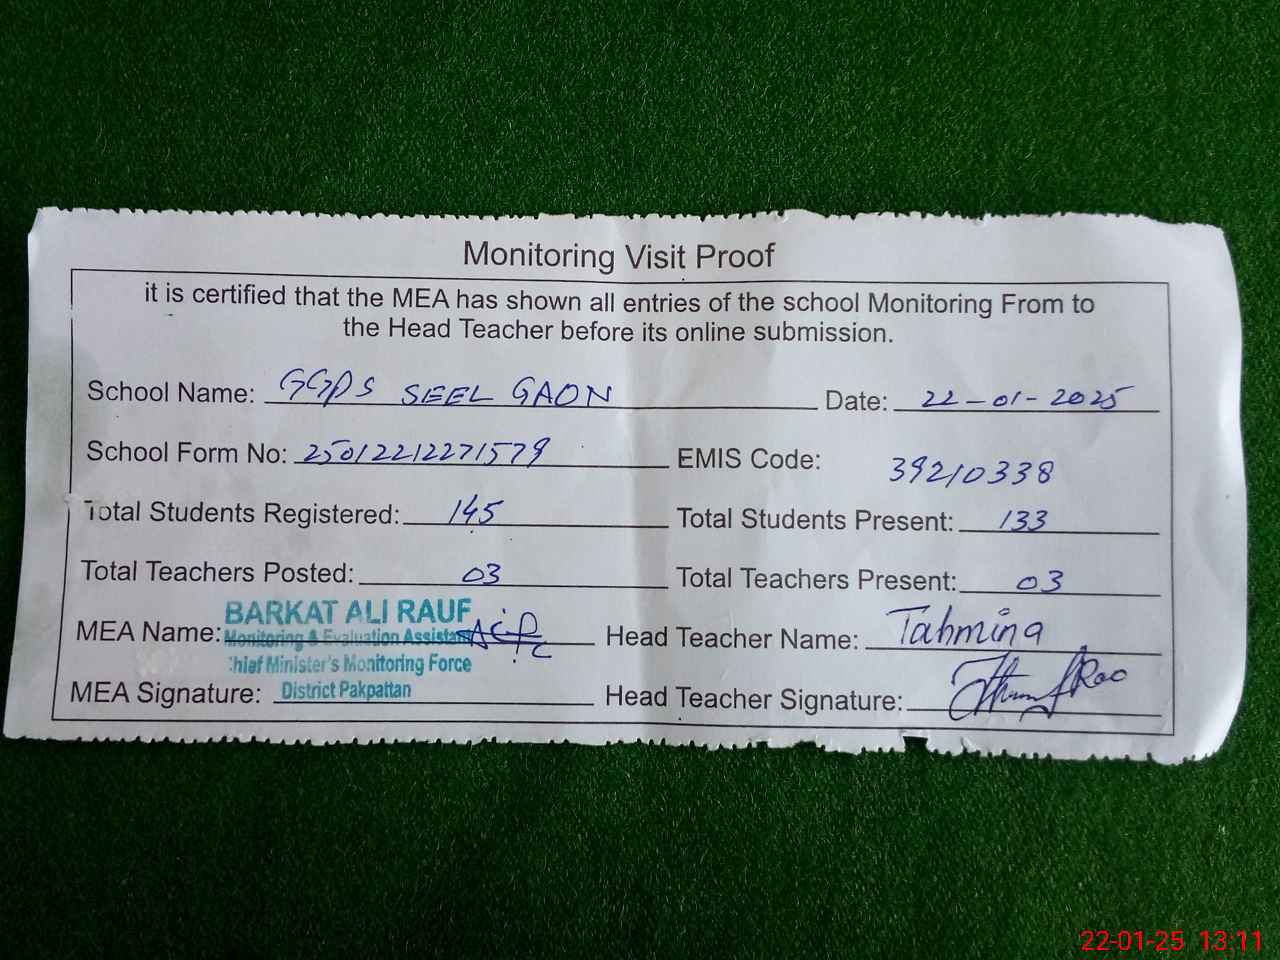 Monitoring Visit Proof
it is certified that the MEA has shown all entries of the school Monitoring From to
the Head Teacher before its online submission.
School Name: GGPS SEEL GAON Date: 22-01-2025
School Form No: 25012212271579 EMIS Code: 39210338
Total Students Registered: 145 Total Students Present: 133
Total Teachers Posted: 03 Total Teachers Present: 03
BARKAT ALI RAUF
MEA Name: Monitoring & Evaluation Assistant Head Teacher Name: Tahmina
Chief Minister's Monitoring Force
MEA Signature: District Pakpattan Head Teacher Signature: Rao
22-01-25 13:11